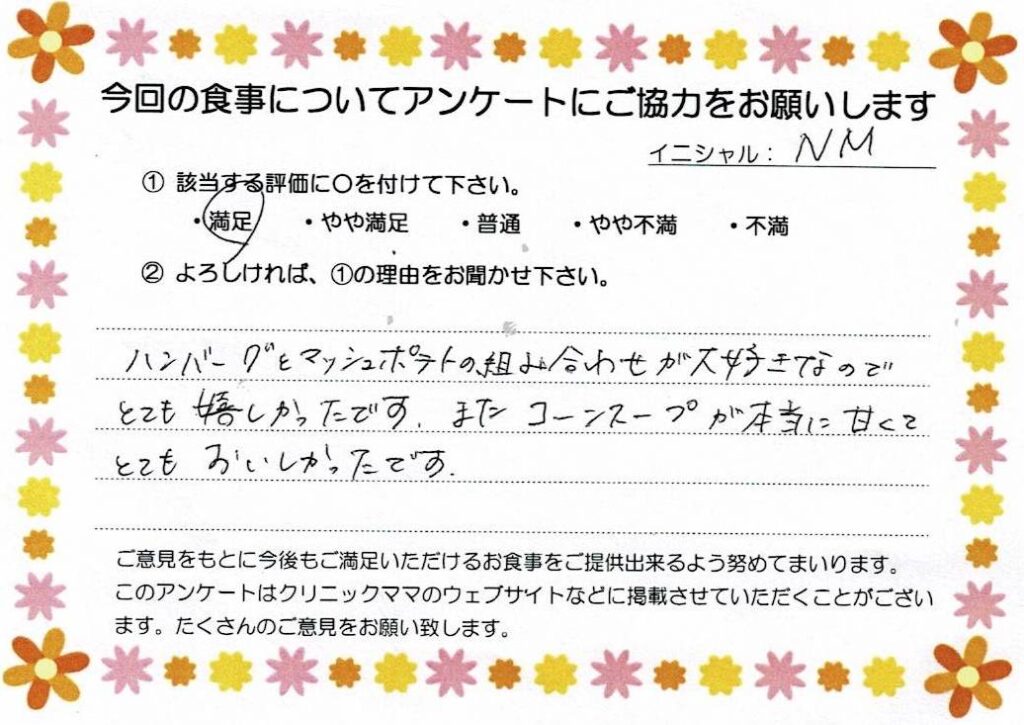 今回の食事についてアンケートにご協力をお願いします
イニシャル： NM
① 該当する評価に〇を付けて下さい。
・満足 ・やや満足 ・普通 ・やや不満 ・不満
② よろしければ、①の理由をお聞かせ下さい。
ハンバーグとマッシュポテトの組み合わせが大好きなので
とても嬉しかったです。また コーンスープが本当に甘くて
とても おいしかったです。
ご意見をもとに今後もご満足いただけるお食事をご提供出来るよう努めてまいります。
このアンケートはクリニックママのウェブサイトなどに掲載させていただくことがござい
ます。たくさんのご意見をお願い致します。